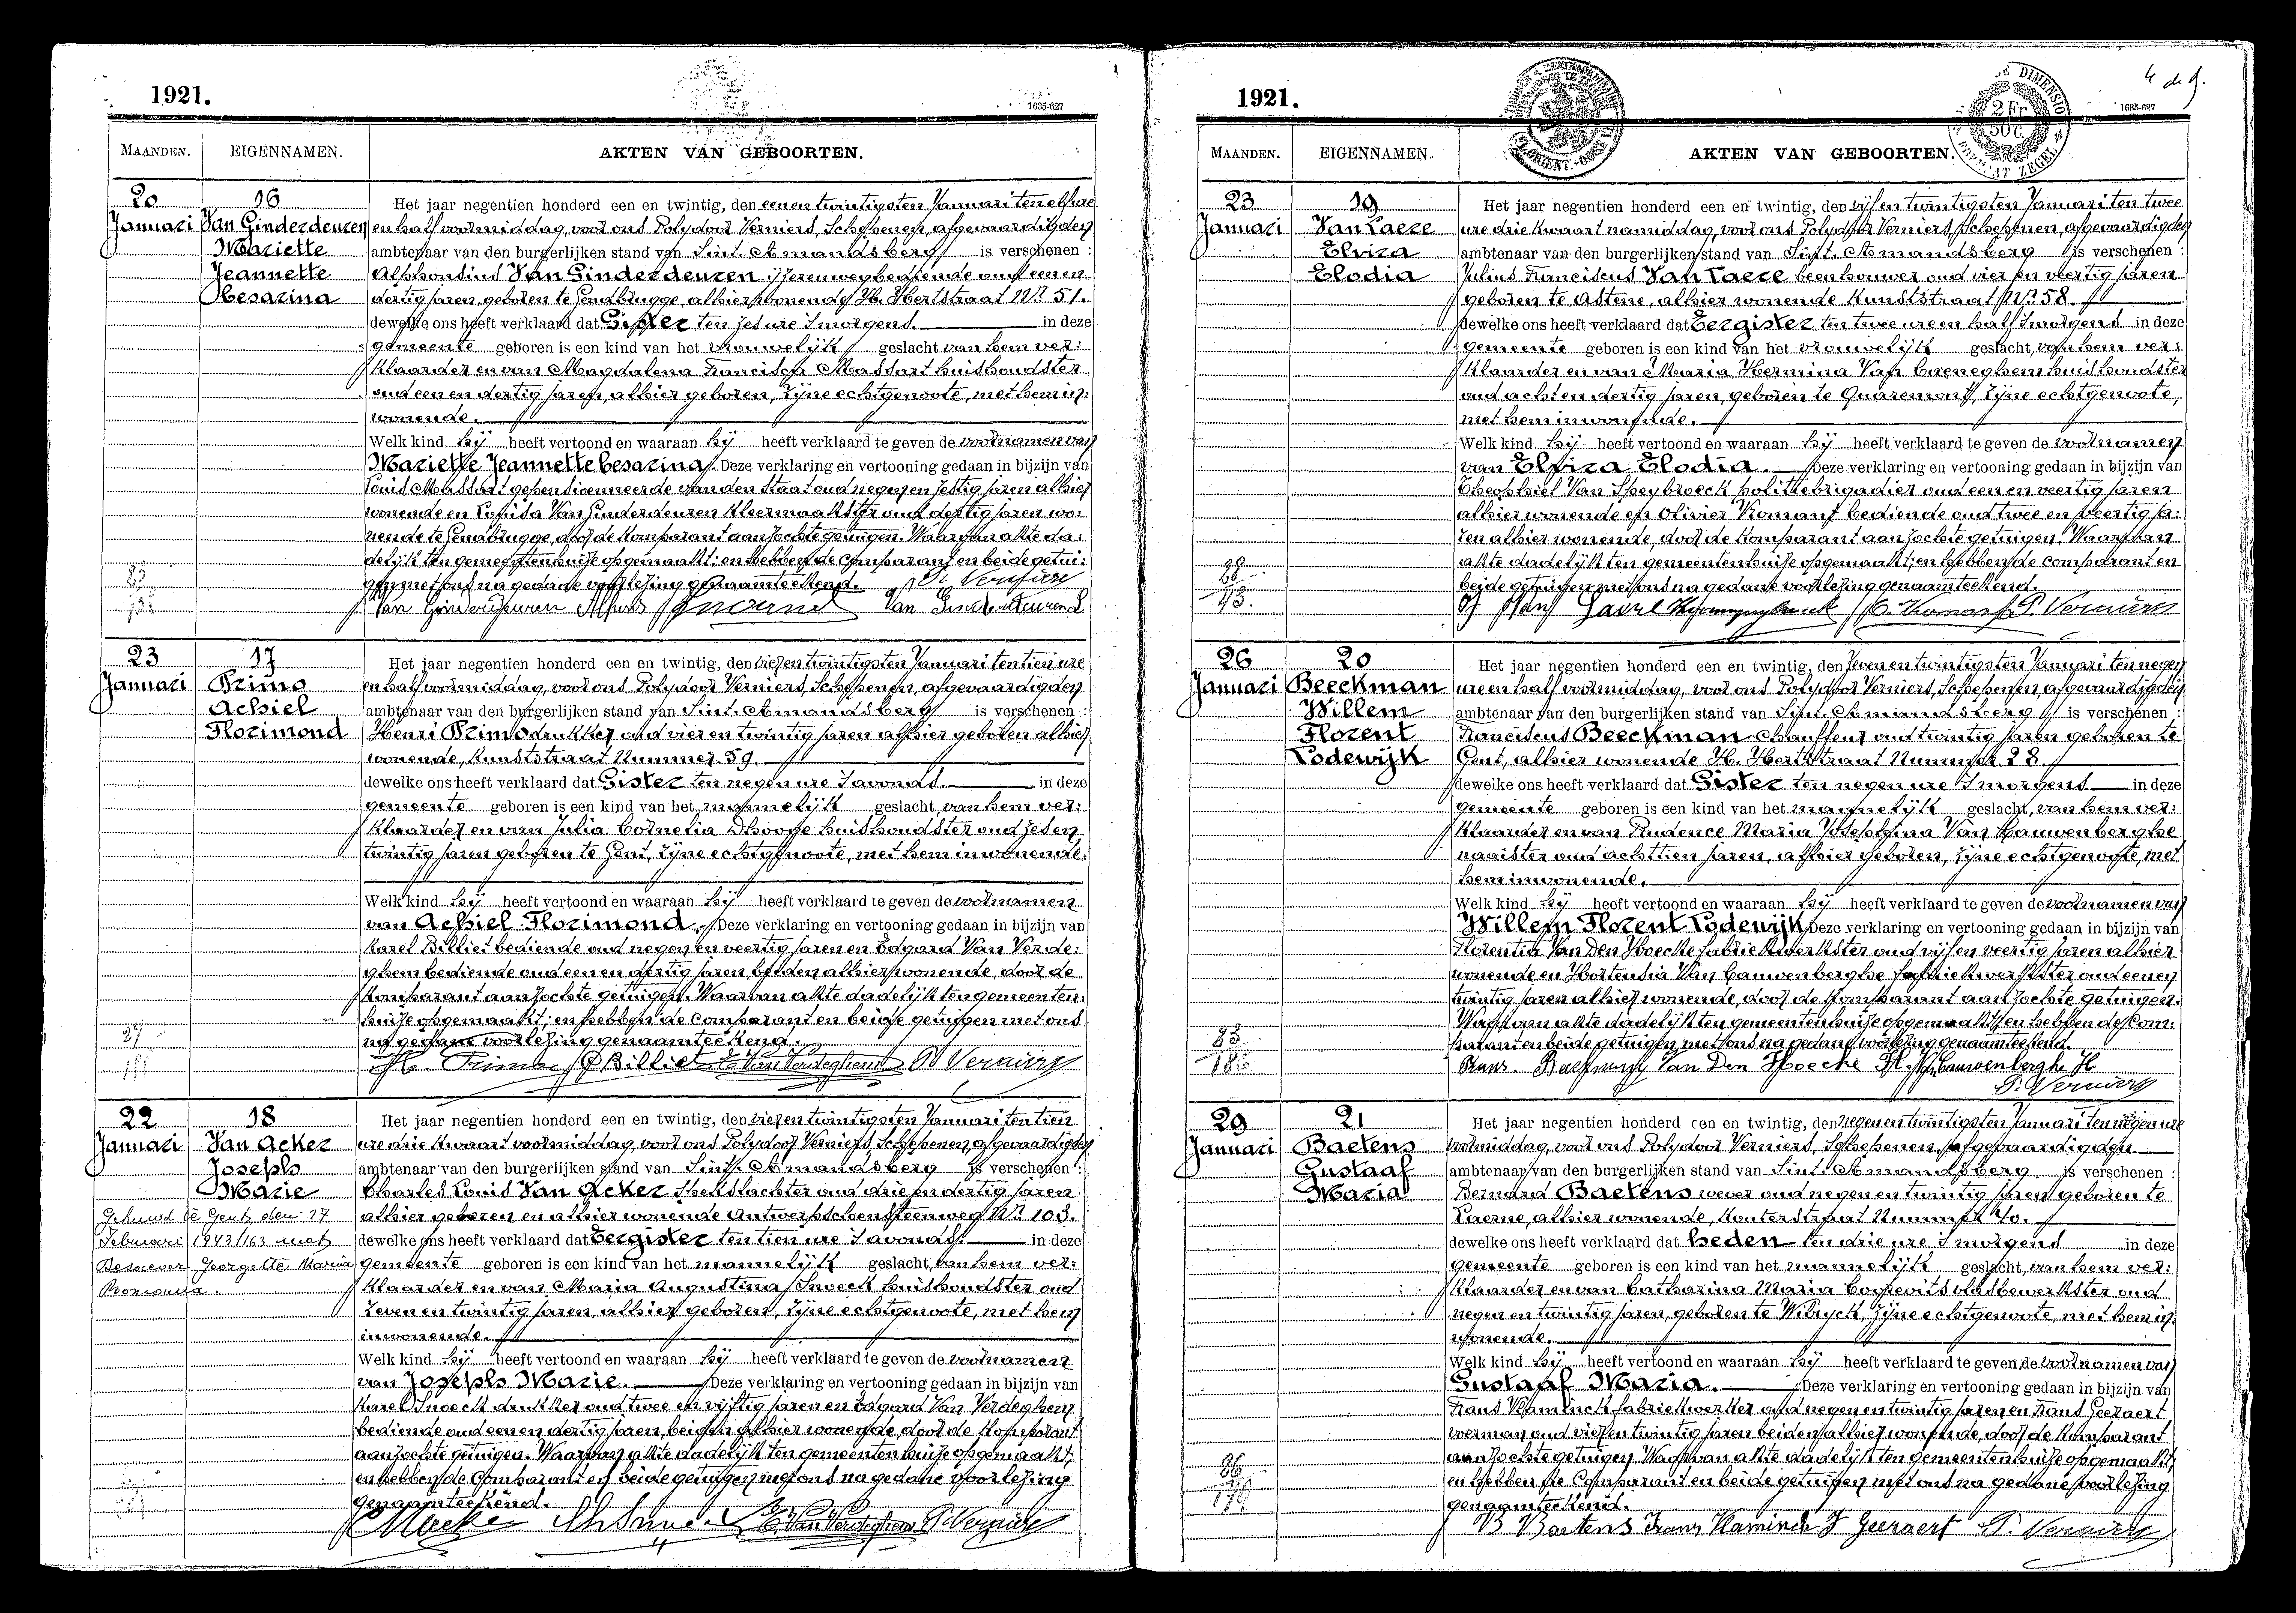 1921.
1635-627
MAANDEN. EIGENNAMEN. AKTEN VAN GEBOORTEN.
20 16 Het jaar negentien honderd een en twintig, den een en twintigsten Januari ten elf ure
Januari Van Ginderdeuren en half voormiddag, voor ons Polydoor Verniers, Schepenen, afgevaardigden
Mariette ambtenaar van den burgerlijken stand van Sint-Amandsberg is verschenen :
Jeannette Alphonsius Van Ginderdeuren ijzerenwegbediende oud een en
Cesarina dertig jaren, geboren te Gendbrugge, alhier wonende H. Hertstraat Nr. 51.
dewelke ons heeft verklaard dat Gister ten zes ure 's morgens. in deze
gemeente geboren is een kind van het vrouwelijk geslacht, van hem ver:
klaarder en van Magdalena Francisca Massart huishoudster
oud een en dertig jaren, alhier geboren, zijne echtgenoote, met hem in:
wonende.
Welk kind hij heeft vertoond en waaraan hij heeft verklaard te geven de voornamen van
Mariette Jeannette Cesarina. Deze verklaring en vertooning gedaan in bijzijn van
Louis Massart gepensioenneerde van den staat oud negen en zestig jaren alhier
wonende en Louisa Van Ginderdeuren kleermaakster oud dertig jaren wo:
nende te Gendbrugge, door de komparant aanzochte getuigen. Waarvan akte da:
delijk ten gemeentenhuize opgemaakt; en hebben de comparant en beide getui:
gen met ons na gedane voorlezing genaamteekend. P. Verniers
23 17 Het jaar negentien honderd een en twintig, den vier en twintigsten Januari ten tien ure
Januari Primo en half voormiddag, voor ons Polydoor Verniers, Schepenen, afgevaardigden
Achiel ambtenaar van den burgerlijken stand van Sint-Amandsberg is verschenen :
Florimond Henri Primo drukker oud vier en twintig jaren alhier geboren alhier
wonende, Kunststraat Nummer 59.
dewelke ons heeft verklaard dat Gister ten negen ure 's avonds. in deze
gemeente geboren is een kind van het mannelijk geslacht, van hem ver:
klaarder en van Julia Cornelia Dhooge huishoudster oud zes en
twintig jaren geboren te Gent, zijne echtgenoote, met hem inwonende.
Welk kind hij heeft vertoond en waaraan hij heeft verklaard te geven de voornamen
van Achiel Florimond. Deze verklaring en vertooning gedaan in bijzijn van
Karel Billiet bediende oud negen en veertig jaren en Edgard Van Verde:
ghem bediende oud een en dertig jaren beiden alhier wonende, door de
komparant aanzochte getuigen. Waarvan akte dadelijk ten gemeenten:
huize opgemaakt; en hebben de comparant en beide getuigen met ons
na gedane voorlezing genaamteekend.
H. Primo Billiet E. Van Verdeghem P. Verniers
22 18 Het jaar negentien honderd een en twintig, den vier en twintigsten Januari ten tien
Januari Van Acker ure drie kwaart voormiddag, voor ons Polydoor Verniers, Schepenen, afgevaardigden
Joseph ambtenaar van den burgerlijken stand van Sint-Amandsberg is verschenen :
Marie Charles Louis Van Acker spekslachter oud drie en dertig jaren
Gehuwd te Gent, den 27 alhier geboren en alhier wonende Antwerpschensteenweg Nr. 103.
Februari 1943/163 met dewelke ons heeft verklaard dat Eergister ten tien ure 's avonds. in deze
Georgette Maria gemeente geboren is een kind van het mannelijk geslacht, van hem ver:
klaarder en van Maria Augustina Snoeck huishoudster oud
zeven en twintig jaren, alhier geboren, zijne echtgenoote, met hem
inwonende.
Welk kind hij heeft vertoond en waaraan hij heeft verklaard te geven de voornamen
van Joseph Marie. Deze verklaring en vertooning gedaan in bijzijn van
Karel Snoeck drukker oud twee en vijftig jaren en Edgard Van Verdeghem
bediende oud een en dertig jaren, beiden alhier wonende, door de komparant
aanzochte getuigen. Waarvan akte dadelijk ten gemeentenhuize opgemaakt;
en hebben de comparant en beide getuigen met ons na gedane voorlezing
genaamteekend.
E. Van Verdeghem P. Verniers
1921.
2 Fr
50 C.
1635-627
MAANDEN. EIGENNAMEN. AKTEN VAN GEBOORTEN.
23 19 Het jaar negentien honderd een en twintig, den vijf en twintigsten Januari ten twee
Januari Van Laere ure drie kwaart namiddag, voor ons Polydoor Verniers, Schepenen, afgevaardigden
Elvira ambtenaar van den burgerlijken stand van Sint-Amandsberg is verschenen :
Elodia Julius Franciscus Van Laere beenhouwer oud vier en veertig jaren
geboren te Astene, alhier wonende Kunststraat Nr. 58.
dewelke ons heeft verklaard dat Eergister ten twee ure en half 's morgens in deze
gemeente geboren is een kind van het vrouwelijk geslacht, van hem ver:
klaarder en van Maria Hermina Van Caeneghem huishoudster
oud acht en dertig jaren, geboren te Quaremont, zijne echtgenoote,
met hem inwonende.
Welk kind hij heeft vertoond en waaraan hij heeft verklaard te geven de voornamen
van Elvira Elodia. Deze verklaring en vertooning gedaan in bijzijn van
Theophiel Van Speybroeck politiebrigadier oud een en veertig jaren
alhier wonende en Olivier Komans bediende oud twee en veertig ja:
ren alhier wonende, door de komparant aanzochte getuigen. Waarvan
akte dadelijk ten gemeentenhuize opgemaakt; en hebben de comparant en
beide getuigen met ons na gedane voorlezing genaamteekend.
P. Verniers
26 20 Het jaar negentien honderd een en twintig, den zeven en twintigsten Januari ten negen
Januari Beeckman ure en half voormiddag, voor ons Polydoor Verniers, Schepenen, afgevaardigden
Willem ambtenaar van den burgerlijken stand van Sint-Amandsberg is verschenen :
Florent Franciscus Beeckman chauffeur oud twintig jaren geboren te
Lodewijk Gent, alhier wonende H. Hertstraat Nummer 28.
dewelke ons heeft verklaard dat Gister ten negen ure 's morgens in deze
gemeente geboren is een kind van het mannelijk geslacht, van hem ver:
klaarder en van Prudence Maria Josephina Van Cauwenberghe
naaister oud achttien jaren, alhier geboren, zijne echtgenoote, met
hem inwonende.
Welk kind hij heeft vertoond en waaraan hij heeft verklaard te geven de voornamen van
Willem Florent Lodewijk Deze verklaring en vertooning gedaan in bijzijn van
Florentia Van Den Hoecke fabriekwerkster oud vijf en veertig jaren alhier
wonende en Hortensia Van Cauwenberghe fabriekwerkster oud een en
twintig jaren alhier wonende, door de komparant aanzochte getuigen.
Waarvan akte dadelijk ten gemeentenhuize opgemaakt; en hebben de com:
parant en beide getuigen met ons na gedane voorlezing genaamteekend.
Van Den Hoecke Fl. V. Cauwenberghe H.
P. Verniers
29 21 Het jaar negentien honderd een en twintig, den negen en twintigsten Januari ten negen ure
Januari Baetens voormiddag, voor ons Polydoor Verniers, Schepenen, afgevaardigden.
Gustaaf ambtenaar van den burgerlijken stand van Sint-Amandsberg is verschenen :
Maria Bernard Baetens wever oud negen en twintig jaren geboren te
Laerne, alhier wonende, Kouterstraat Nummer 40.
dewelke ons heeft verklaard dat heden ten drie ure 's morgens in deze
gemeente geboren is een kind van het mannelijk geslacht, van hem ver:
klaarder en van Catharina Maria
negen en twintig jaren, geboren te Wilryck, zijne echtgenoote, met hem in:
wonende.
Welk kind hij heeft vertoond en waaraan hij heeft verklaard te geven de voornamen van
Gustaaf Maria. Deze verklaring en vertooning gedaan in bijzijn van
Frans Vlaminck fabriekwerker oud negen en twintig jaren en Frans Geeraert
voerman oud vier en twintig jaren beiden alhier wonende, door de komparant
aanzochte getuigen. Waarvan akte dadelijk ten gemeentenhuize opgemaakt;
en hebben de comparant en beide getuigen met ons na gedane voorlezing
genaamteekend.
B Baetens Frans Vlaminck F Geeraert P. Verniers